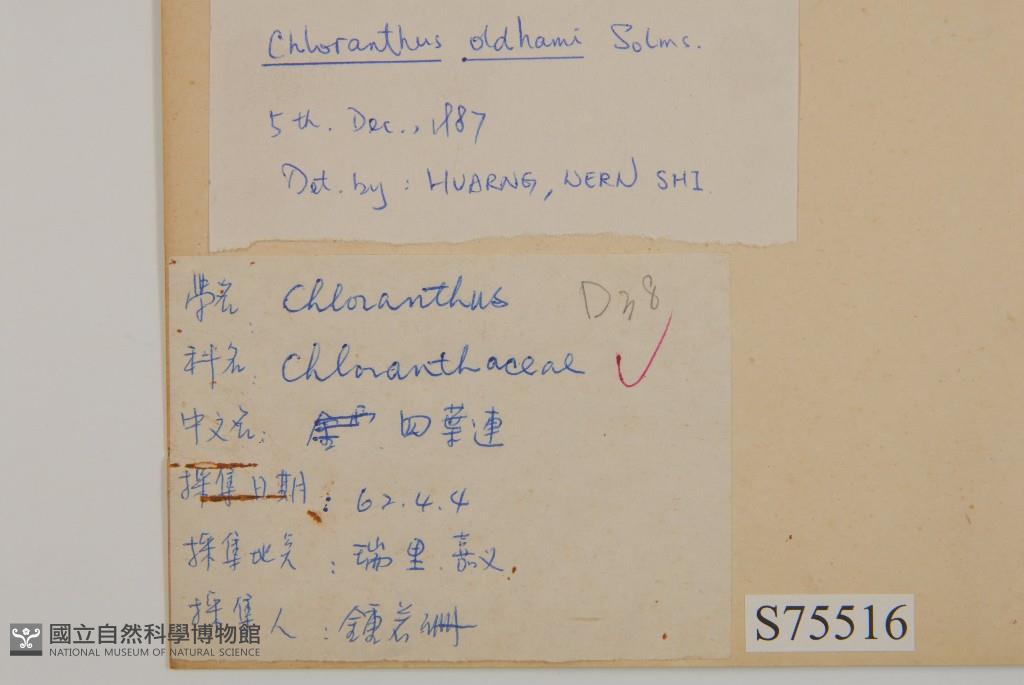 Chloranthus oldhami Solms.
5th. Dec., 1987
Det. by : HUARNG, WERN SHI.
學名: Chloranthus D38
科名: Chloranthaceae
中文名: 四葉連
採集日期: 62.4.4
採集地点: 瑞里.嘉义.
採集人: 鍾若洲
S75516
國立自然科學博物館
NATIONAL MUSEUM OF NATURAL SCIENCE